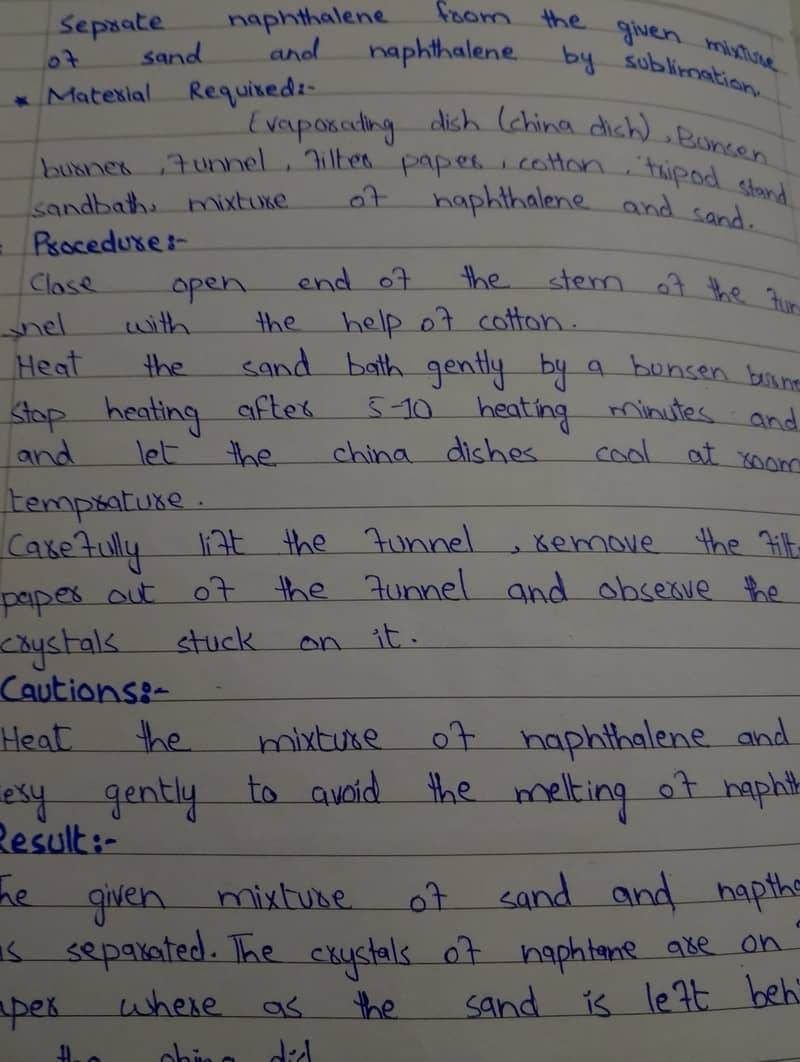 Seprate naphthalene from the given mixture
of sand and naphthalene by sublimation.
* Material Required:-
Evaporating dish (china dish), Bunsen
burner, funnel, filter paper, cotton, tripod stand
sandbath, mixture of naphthalene and sand.
Procedure:-
Close open end of the stem of the fun
nel with the help of cotton.
Heat the sand bath gently by a bunsen burn
stop heating after 5-10 heating minutes and
and let the china dishes cool at room
temprature.
Carefully lift the funnel, remove the filt
paper out of the funnel and observe the
crystals stuck on it.
Cautions:-
Heat the mixture of naphthalene and
ery gently to avoid the melting of naphth
Result:-
The given mixture of sand and naptha
is separated. The crystals of naphtane are on
aper where as the sand is left behi
the china did